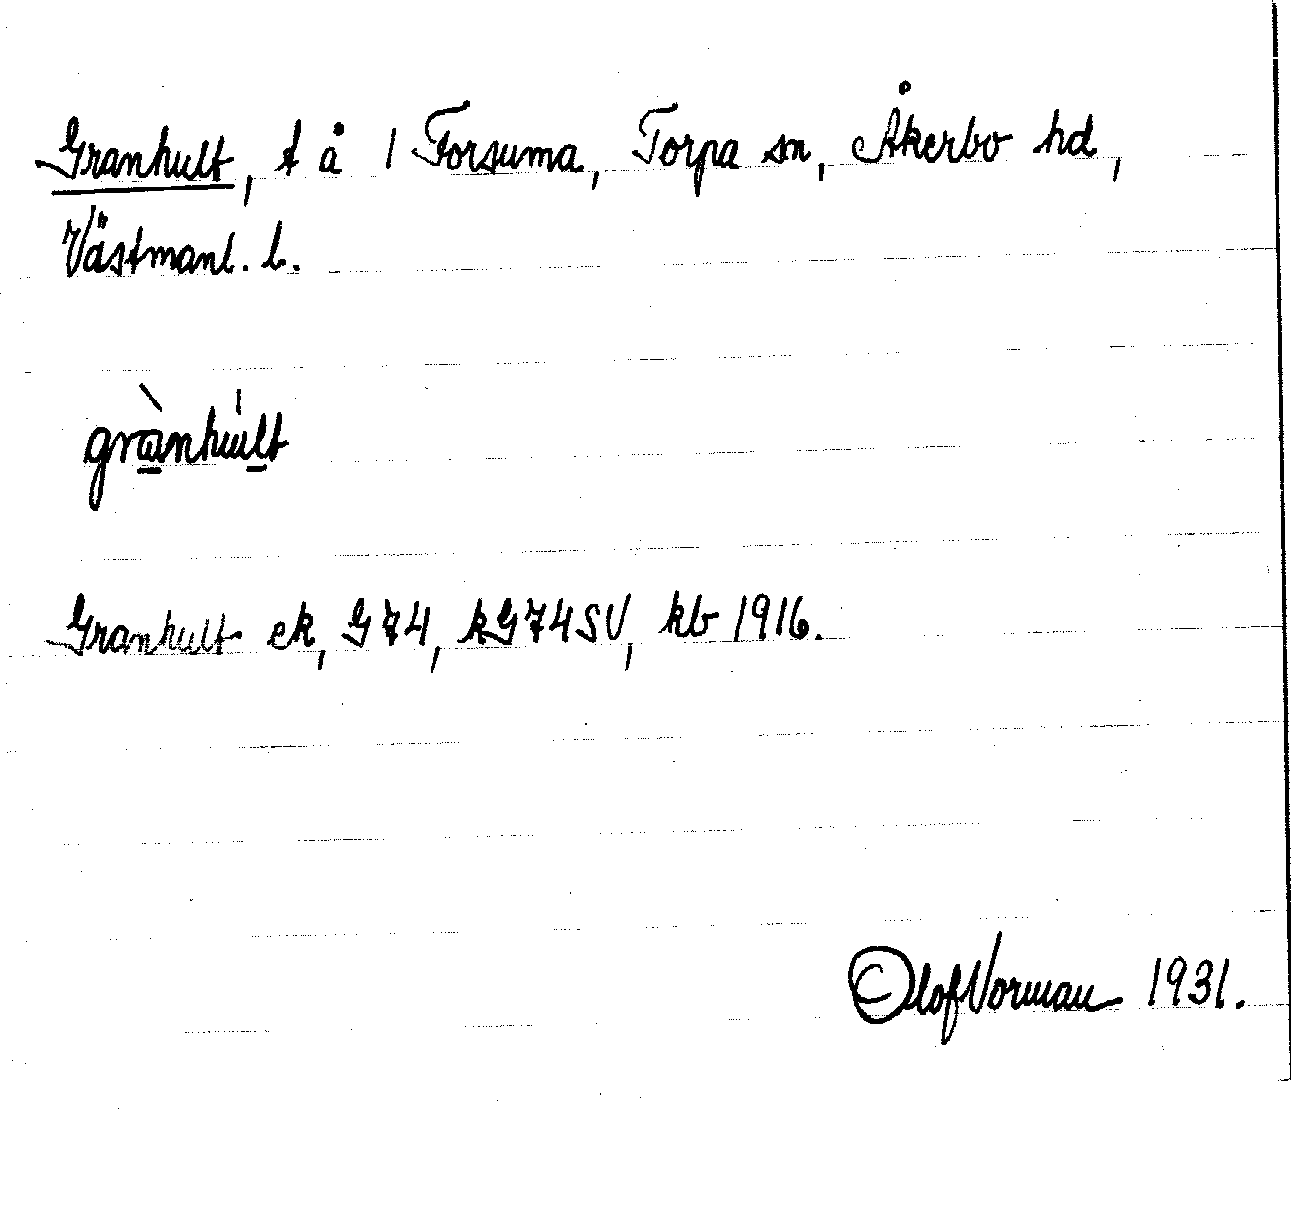 Granhult, t å 1 Forsuma, Torpa sn, Åkerbo hd,
Västmanl. l.
grànhúlt
Granhult ek, G74, kG74SV, kb 1916.
Olof Vorman 1931.